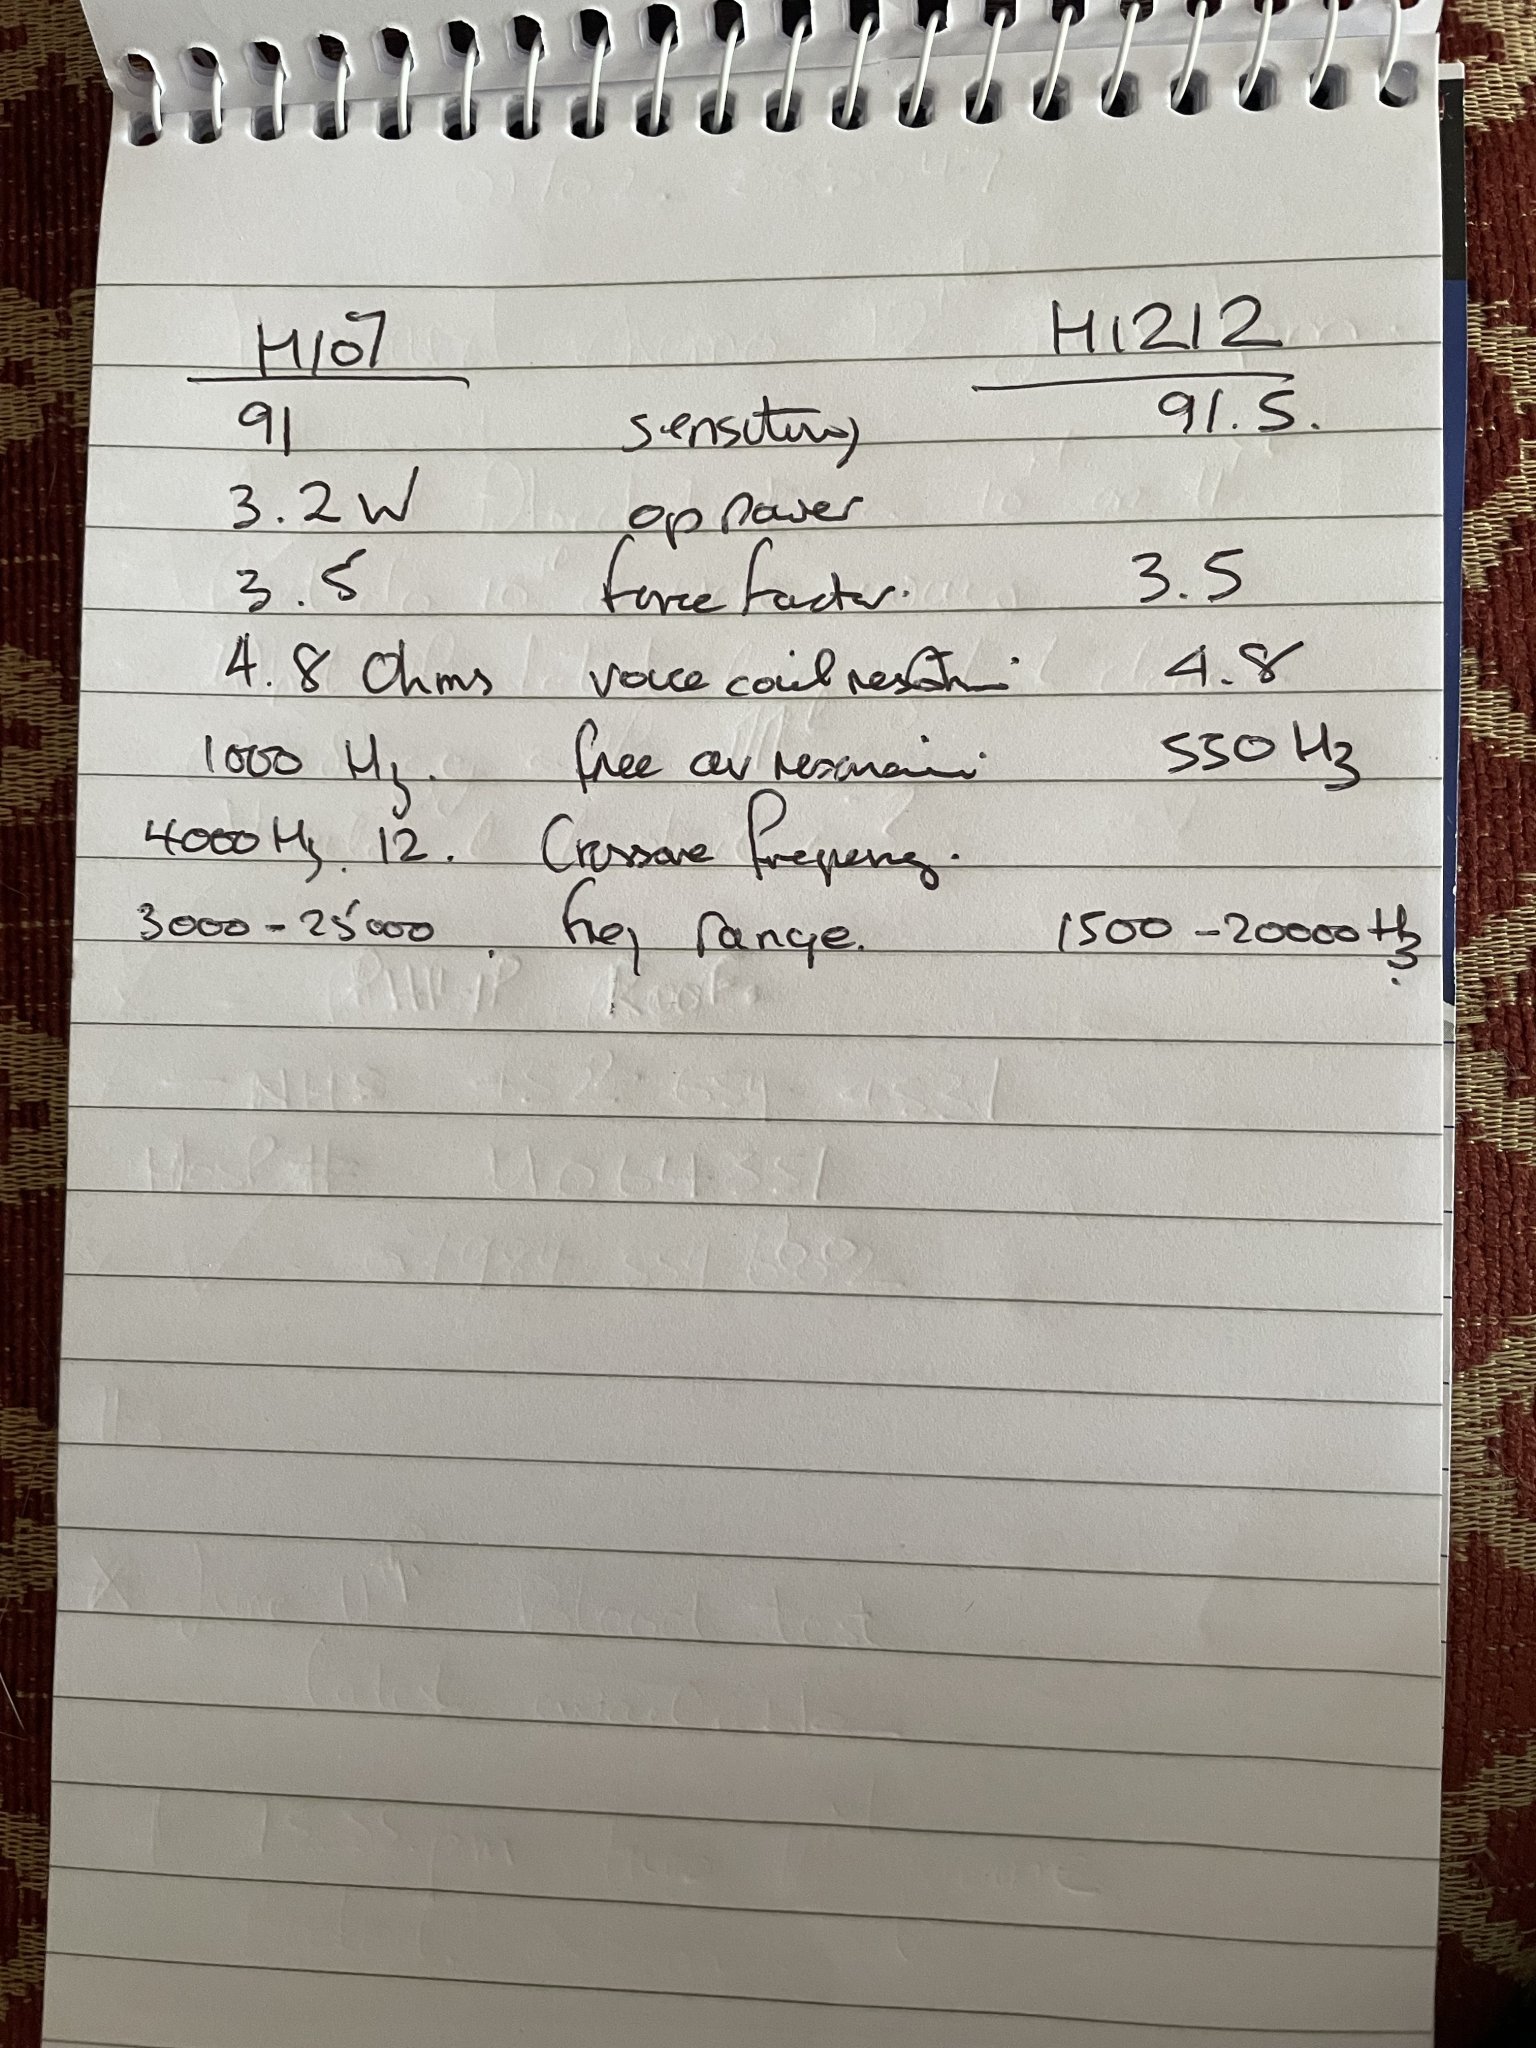 H107 H1212
91 sensitivity 91.5.
3.2 W op power
3.5 force factor. 3.5
4.8 Ohms voice coil 4.8
1000 Hz. free air 550 Hz
4000 Hz. 12. Crossover frequency.
3000 - 25000. freq range. 1500 - 20000 Hz.